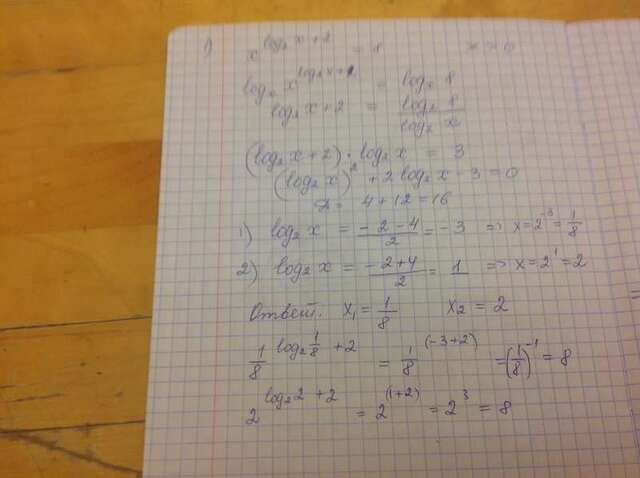 1) x^(log₂x+2) = 8 x > 0
log₂ x^(log₂x+2) = log₂ 8
log₂ x + 2 = log₂ 8 / log₂ x
(log₂ x + 2) · log₂ x = 3
(log₂ x)² + 2 log₂ x - 3 = 0
D = 4 + 12 = 16
1) log₂ x = (-2-4)/2 = -3 => x = 2⁻³ = 1/8
2) log₂ x = (-2+4)/2 = 1 => x = 2¹ = 2
Ответ: x₁ = 1/8 x₂ = 2
1/8^(log₂ 1/8 + 2) = 1/8^(-3+2) = (1/8)⁻¹ = 8
2^(log₂ 2 + 2) = 2^(1+2) = 2³ = 8